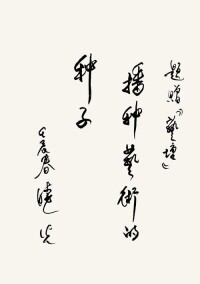 题赠《藝壇》
播种藝術的
种子
壬辰春